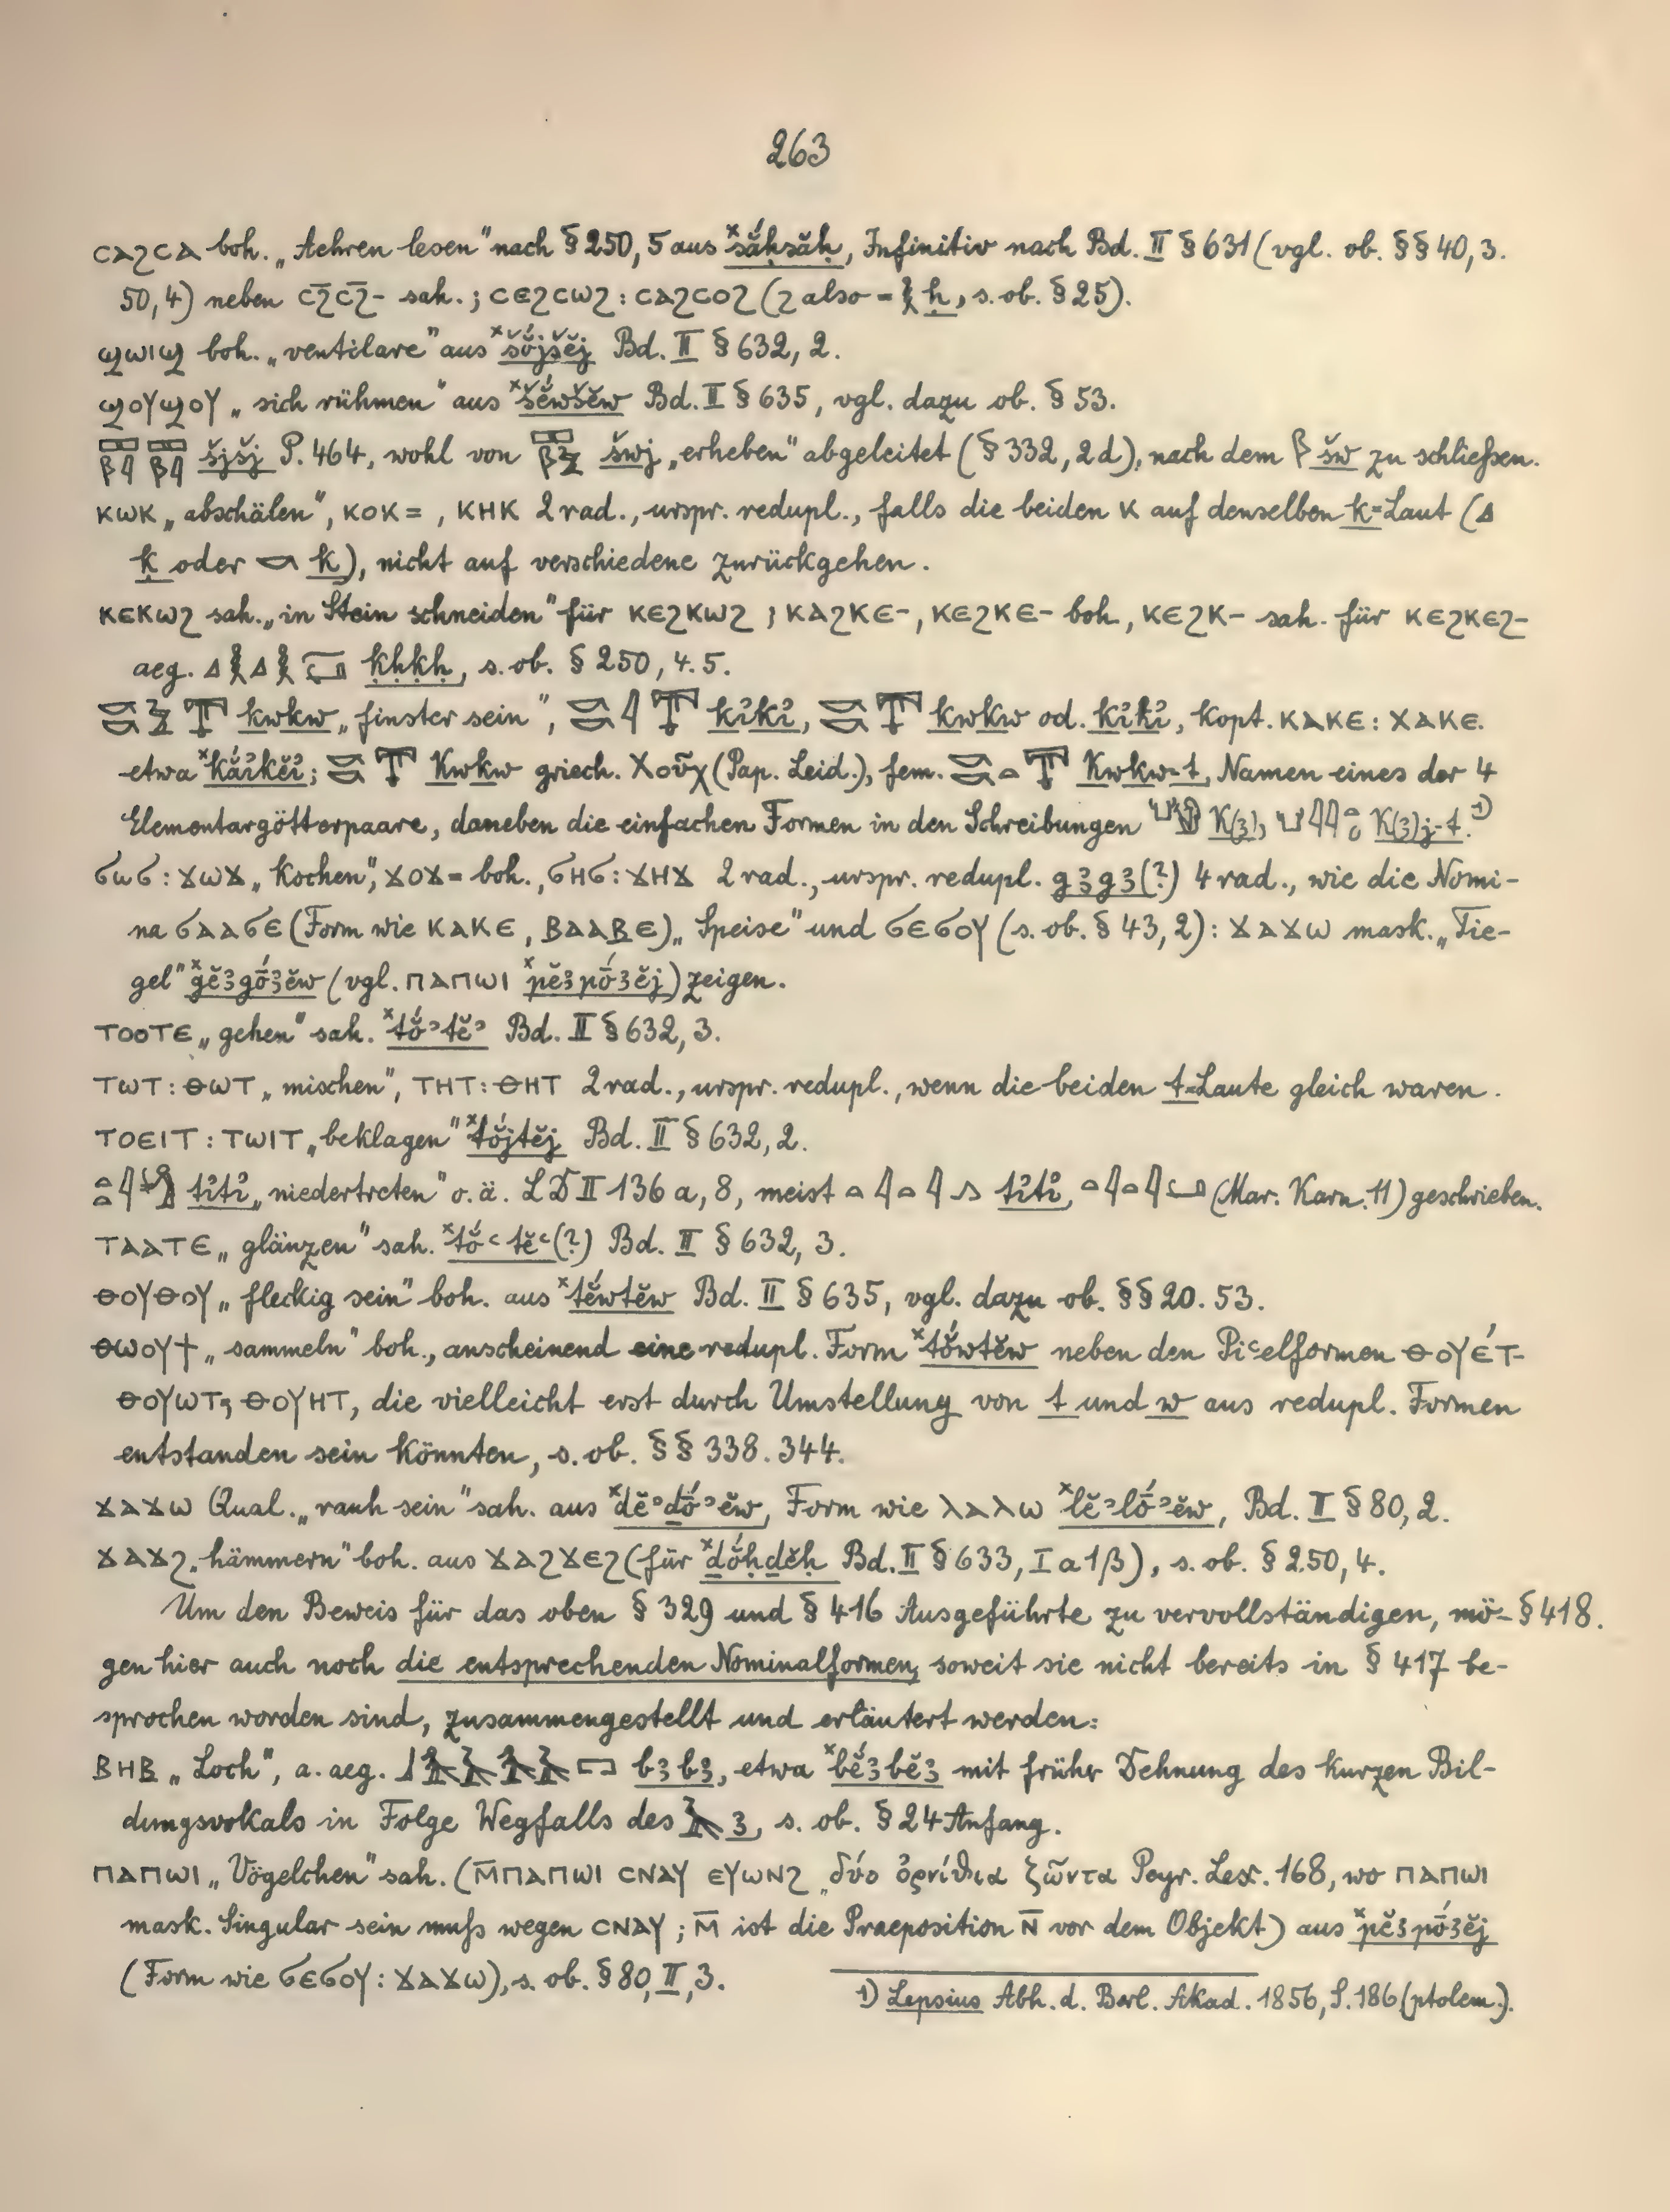 263
ⲤⲀϨⲤⲀ boh. „Aehren lesen" nach § 250, 5 aus ˣsắḥsăḥ, Infinitiv nach Bd. II § 631 (vgl. ob. §§ 40, 3.
50, 4) neben ⲤϨ̄ⲤϨ̄- sah.; ⲤⲈϨⲤⲰϨ : ⲤⲀϨⲤⲞϨ (Ϩ also = 𓎛 ḥ, s. ob. § 25).
ϢⲰⲒϢ boh. „ventilare" aus ˣšŏ́jšĕj Bd. II § 632, 2.
ϢⲞⲨϢⲞⲨ „sich rühmen" aus ˣšĕ́wšĕw Bd. II § 635, vgl. dazu ob. § 53.
𓈙𓆄𓇋 𓈙𓆄𓇋 šjšj P. 464, wohl von 𓈙𓆄𓅱 šwj „erheben" abgeleitet (§ 332, 2d), nach dem 𓆄 šw zu schließen.
ⲔⲰⲔ „abschälen", ⲔⲞⲔ=, ⲔⲎⲔ 2rad., urspr. redupl., falls die beiden Ⲕ auf denselben k=Laut (𓈎
ḳ oder 𓎡 k), nicht auf verschiedene zurückgehen.
ⲔⲈⲔⲰϨ sah. „in Stein schneiden" für ⲔⲈϨⲔⲰϨ; ⲔⲀϨⲔⲈ-, ⲔⲈϨⲔⲈ- boh., ⲔⲈϨⲔ- sah. für ⲔⲈϨⲔⲈϨ-
aeg. 𓈎𓎛𓈎𓎛 ḳḥḳḥ, s. ob. § 250, 4.5.
𓎡𓎡𓅱𓇰 kwkw „finster sein", 𓎡𓎡𓇋𓇰 kỉkỉ, 𓎡𓎡𓇰 kwkw od. kỉkỉ, kopt. ⲔⲀⲔⲈ : ⲬⲀⲔⲈ.
etwa ˣkắỉkĕỉ; 𓎡𓎡𓇰 Kwkw griech. Χοῦχ (Pap. Leid.), fem. 𓎡𓎡𓏏𓇰 Kwkw-t, Namen eines der 4
Elementargötterpaare, daneben die einfachen Formen in den Schreibungen K(ꜣ), K(ꜣ)j-t.¹⁾
ϬⲰϬ : ϪⲰϪ „kochen", ϪⲞϪ= boh., ϬⲎϬ : ϪⲎϪ 2rad., urspr. redupl. gꜣgꜣ(?) 4rad., wie die Nomi-
na ϬⲀⲀϬⲈ (Form wie ⲔⲀⲔⲈ, ⲂⲀⲀⲂⲈ) „Speise" und ϬⲈϬⲞⲨ (s. ob. § 43, 2) : ϪⲀϪⲰ mask. „Tie-
gel" ˣgĕꜣgṓꜣĕw (vgl. ⲠⲀⲠⲰⲒ ˣpĕꜣpṓꜣĕj) zeigen.
ⲦⲞⲞⲦⲈ „gehen" sah. ˣtŏ́ʾtĕʾ Bd. II § 632, 3.
ⲦⲰⲦ : ⲐⲰⲦ „mischen", ⲦⲎⲦ : ⲐⲎⲦ 2rad., urspr. redupl., wenn die beiden t=Laute gleich waren.
ⲦⲞⲈⲒⲦ : ⲦⲰⲒⲦ „beklagen" ˣtŏ́jtĕj Bd. II § 632, 2.
tỉtỉ „niedertreten" o. ä. LD II 136 a, 8, meist 𓏏𓇋𓏏𓇋𓂻 tỉtỉ, 𓏏𓇋𓏏𓇋𓂡 (Mar. Karn. 11) geschrieben.
ⲦⲀⲀⲦⲈ „glänzen" sah. ˣtŏ́ʿtĕʿ(?) Bd. II § 632, 3.
ⲐⲞⲨⲐⲞⲨ „fleckig sein" boh. aus ˣtĕ́wtĕw Bd. II § 635, vgl. dazu ob. §§ 20. 53.
ⲐⲰⲞⲨϮ „sammeln" boh., anscheinend eine redupl. Form ˣtŏ́wtĕw neben den Piʿelformen ⲐⲞⲨⲈ́Ⲧ-
ⲐⲞⲨⲰⲦ⸗, ⲐⲞⲨⲎⲦ, die vielleicht erst durch Umstellung von t und w aus redupl. Formen
entstanden sein könnten, s. ob. §§ 338. 344.
ϪⲀϪⲰ Qual. „rauh sein" sah. aus ˣḏĕʾḏṓʾĕw, Form wie ⲖⲀⲖⲰ ˣlĕʾlṓʾĕw, Bd. II § 80, 2.
ϪⲀϪϨ „hämmern" boh. aus ϪⲀϨϪⲈϨ (für ˣḏŏ́ḥḏĕḥ Bd. II § 633, I a 1β), s. ob. § 250, 4.
Um den Beweis für das oben § 329 und § 416 Ausgeführte zu vervollständigen, mö- § 418.
gen hier auch noch die entsprechenden Nominalformen, soweit sie nicht bereits in § 417 be-
sprochen worden sind, zusammengestellt und erläutert werden:
ⲂⲎⲂ „Loch", a. aeg. 𓃀𓅡𓄿𓅡𓄿𓉐 bꜣbꜣ, etwa ˣbĕ́ꜣbĕꜣ mit früher Dehnung des kurzen Bil-
dungsvokals in Folge Wegfalls des 𓄿 ꜣ, s. ob. § 24 Anfang.
ⲠⲀⲠⲰⲒ „Vögelchen" sah. (Ⲙ̄ⲠⲀⲠⲰⲒ ⲤⲚⲀⲨ ⲈⲨⲰⲚϨ „δύο ὀρνίθια ζῶντα Peyr. Lex. 168, wo ⲠⲀⲠⲰⲒ
mask. Singular sein muß wegen ⲤⲚⲀⲨ; Ⲙ̄ ist die Praeposition Ⲛ̄ vor dem Objekt) aus ˣpĕꜣpṓꜣĕj
(Form wie ϬⲈϬⲞⲨ : ϪⲀϪⲰ), s. ob. § 80, II, 3.
1) Lepsius Abh. d. Berl. Akad. 1856, S. 186 (ptolem.).